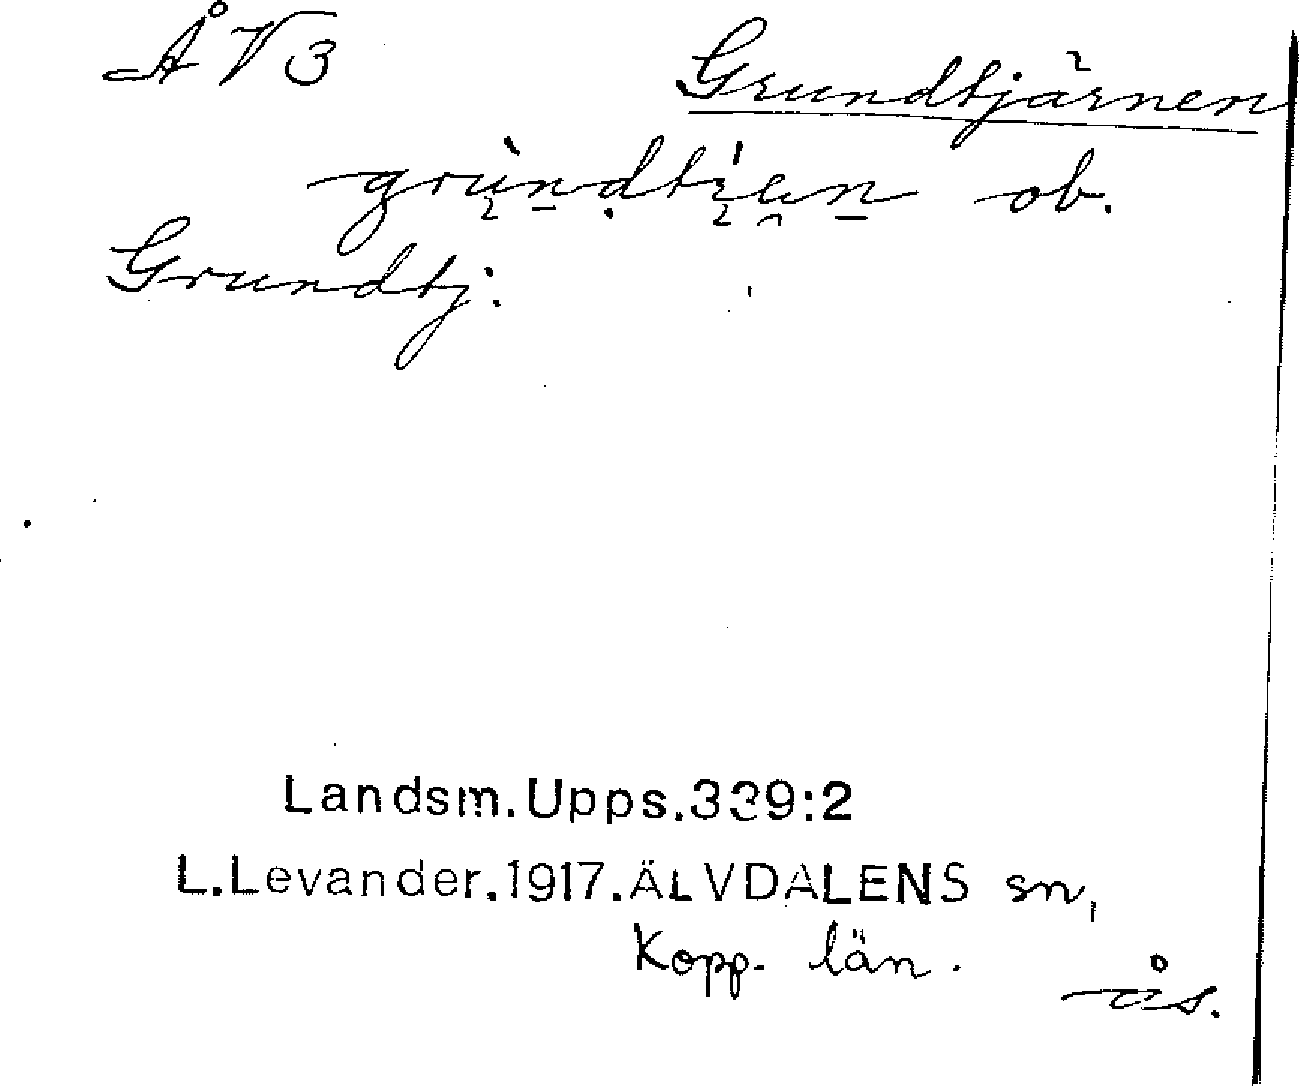 ÅV3
Grundtjärnen
grundtjän ob.
Grundtj:
Landsm.Upps.339:2
L.Levander.1917.ÄLVDALENS sn,
Kopp. län.
ås.